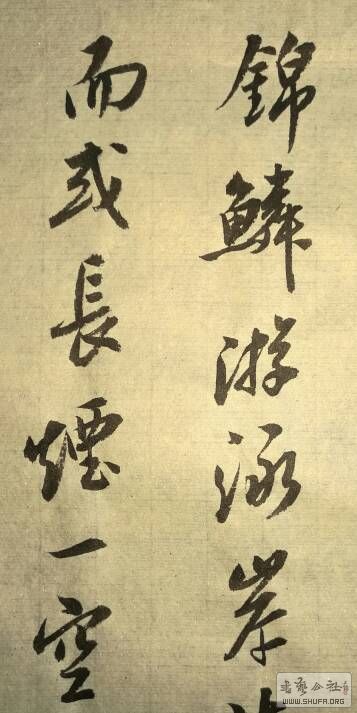 錦鱗游泳岸
而或長煙一空
WWW.SHUFA.ORG